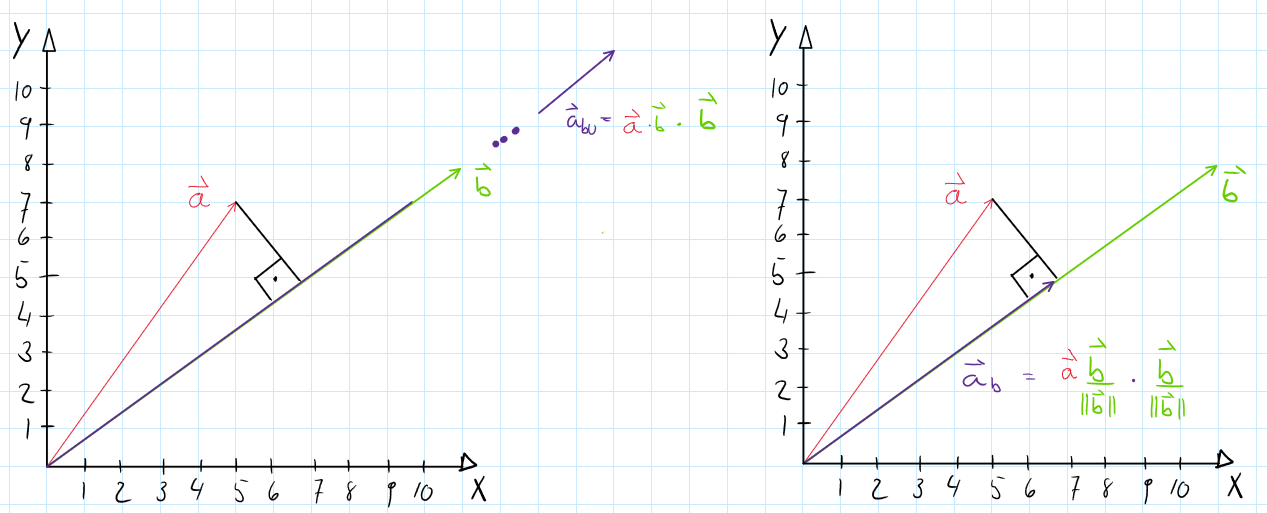 y
10
9
8
7
6
5
4
3
2
1
1 2 3 4 5 6 7 8 9 10 x
a⃗
b⃗
a⃗bu = a⃗ · b⃗ · b⃗
y
10
9
8
7
6
5
4
3
2
1
1 2 3 4 5 6 7 8 9 10 x
a⃗
b⃗
a⃗b = a⃗ b⃗/||b⃗|| · b⃗/||b⃗||